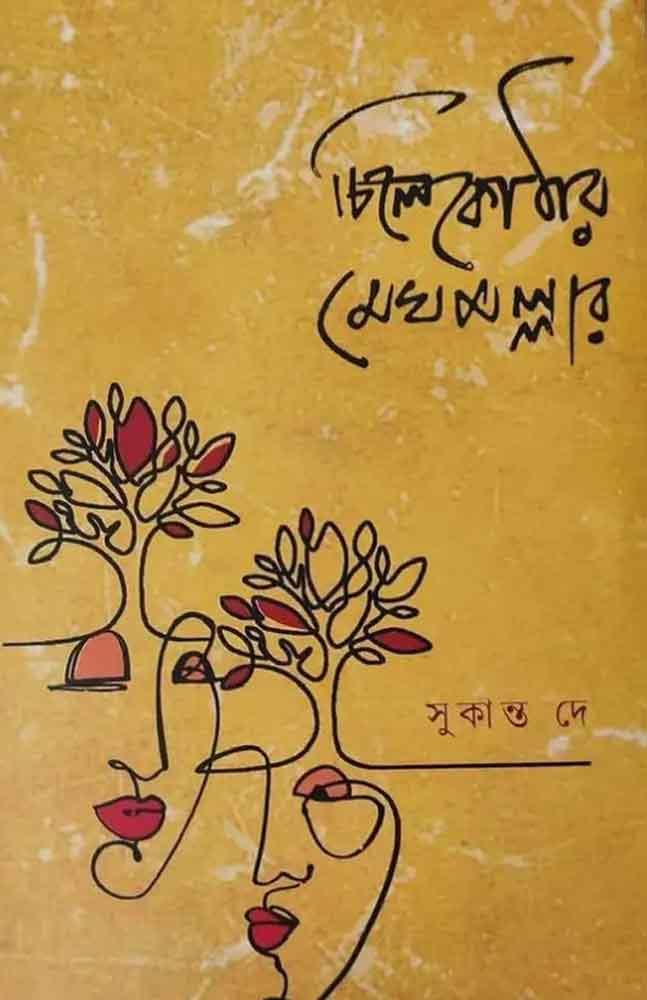 চিলেকোঠার
মেঘমল্লার
সুকান্ত দে